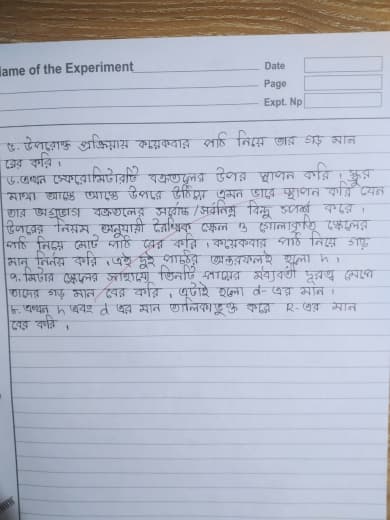 Name of the Experiment
Date
Page
Expt. No
৫. উপরোক্ত প্রক্রিয়ায় কয়েকবার পাঠ নিয়ে তার গড় মান
বের করি।
৬. এখন স্ফেরোমিটারটি বক্রতলের উপর স্থাপন করি। স্ক্রুর
মাথা আস্তে আস্তে উপরে উঠিয়ে এমন ভাবে স্থাপন করি যেন
তার অগ্রভাগ বক্রতলের সর্বোচ্চ/সর্বনিম্ন বিন্দু স্পর্শ করে।
উপরের নিয়ম অনুযায়ী রৈখিক স্কেল ও গোলাকৃতি স্কেলের
পাঠ নিয়ে মোট পাঠ বের করি। কয়েকবার পাঠ নিয়ে গড়
মান নির্নয় করি। এই দুই পাঠের অন্তরফলই হলো h।
৭. মিটার স্কেলের সাহায্যে তিনটি পায়ের মধ্যবর্তী দূরত্ব মেপে
তাদের গড় মান বের করি। এটাই হলো d-এর মান।
৮. এখন h এবং d এর মান তালিকাভুক্ত করে R-এর মান
বের করি।